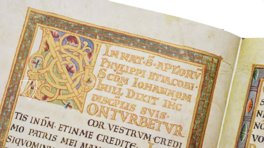 IN NAT S APLORV
PHILIPPI ET IACOBI
SCDM IOHANNEM
IN ILL DIXIT IHC
DISCIPLIS SUIS
NON TURBETUR
COR VESTRUM CREDI
TIS IN DM ET IN ME CREDITE
MO PATRIS MEI MAN
SI QUO MIN